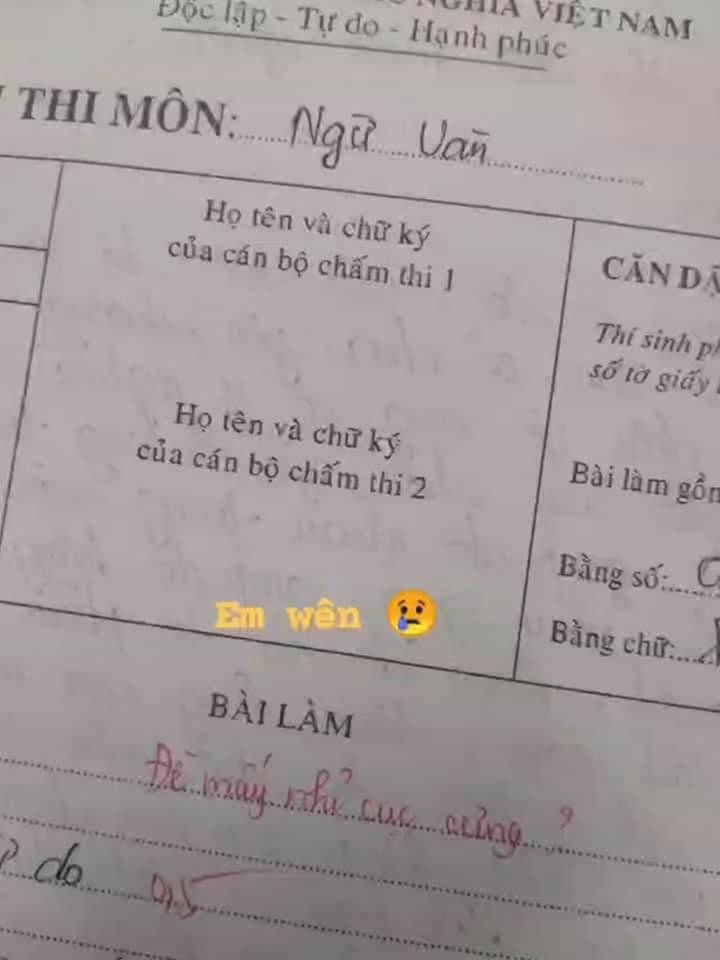 NGHĨA VIỆT NAM
Độc lập - Tự do - Hạnh phúc
THI MÔN: Ngữ Văn
Họ tên và chữ ký
của cán bộ chấm thi 1
Họ tên và chữ ký
của cán bộ chấm thi 2
CĂN DẶ
Thí sinh ph
số tờ giấy
Bài làm gồm
Bằng số:
Bằng chữ:
Em wên 😢
BÀI LÀM
Đề mấy nhỉ cục cưng?
do